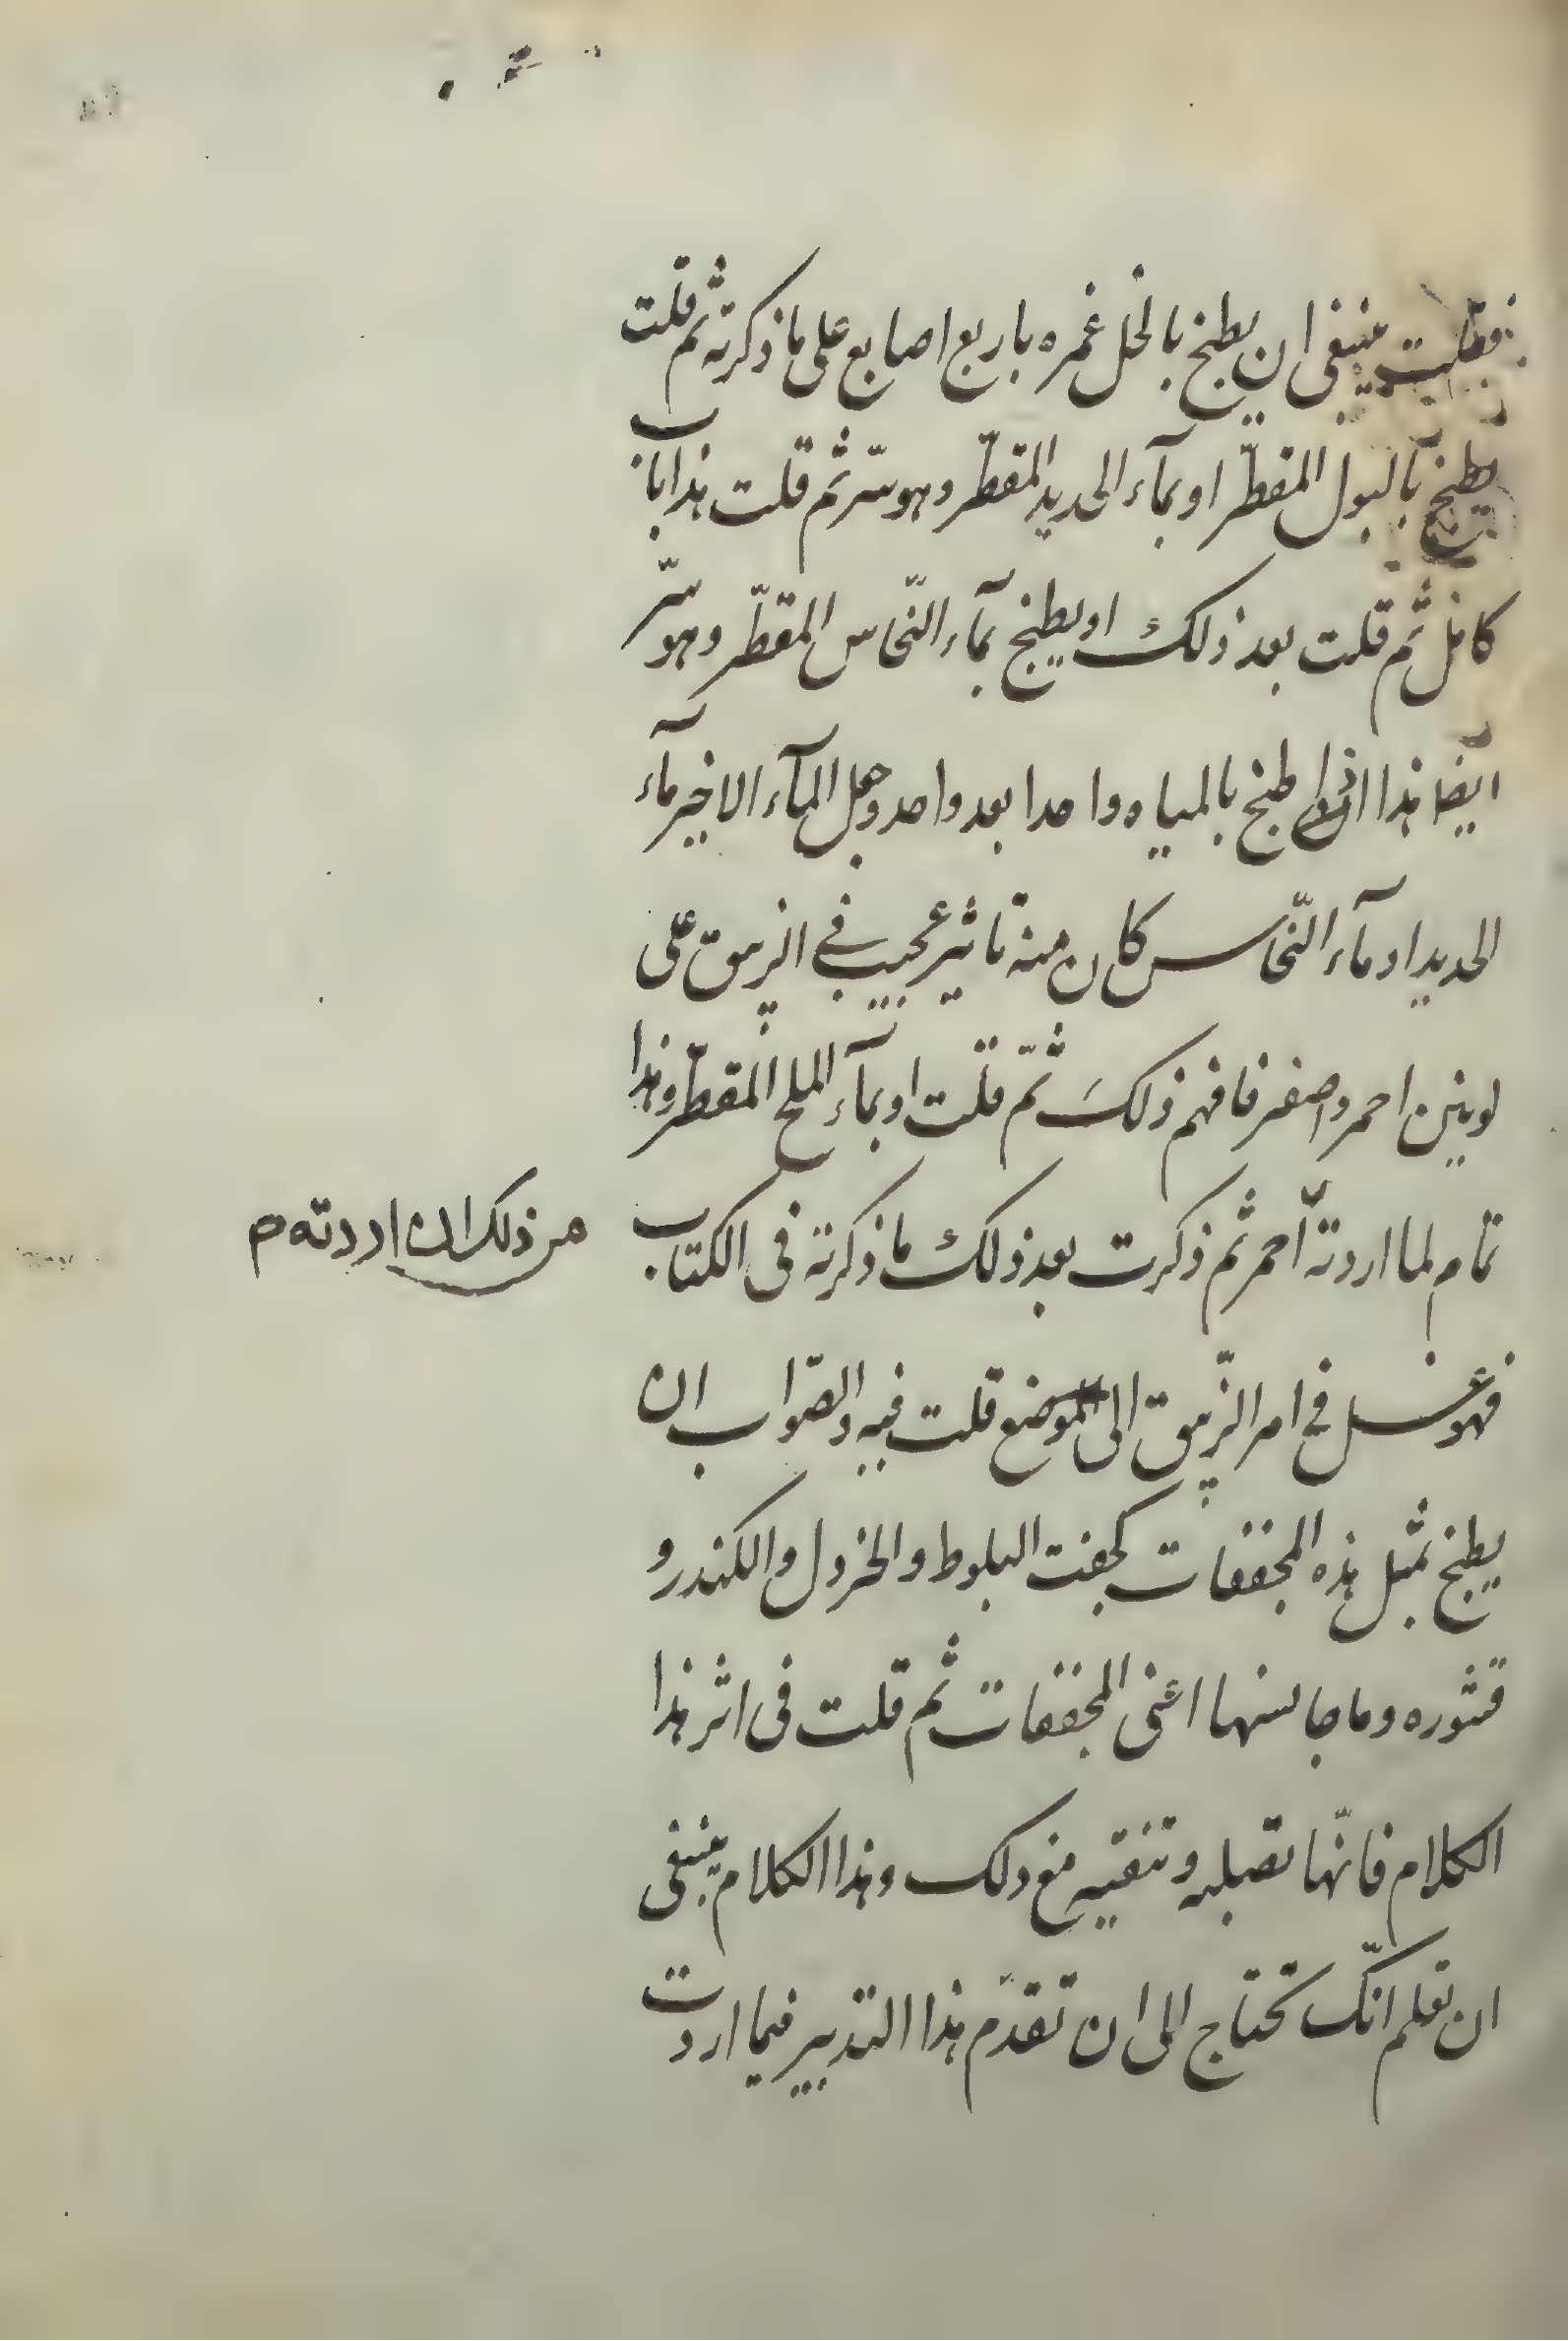 فقلت ينبغى ان يطبخ بالخل غمره باربع اصابع على ما ذكرته ثم قلت
يطبخ بالبول المقطّر او بمآء الحديد المقطّر وهو سّر ثم قلت هذا باب
كامل ثم قلت بعد ذلك او يطبخ بمآء النّحاس المقطّر وهو سّر
ايضا هذا اذا طبخ بالمياه واحدا بعد واحد وجعل المآء الاخير مآء
الحديد او مآء النّحاس كان منه تاثير عجيب في الزيبق على
لونين احمر واصفر فافهم ذلك ثمّ قلت او بمآء الملح المقطّر وهذا
تمام لما اردته احمر ثم ذكرت بعد ذلك ما ذكرته فى الكتاب
من ذلك ان اردته م
فهو غسل في امر الزّيبق الى الموضع قلت فيه والصّواب ان
يطبخ بمثل هذه المجففات كجفت البلوط والخردل والكندر و
قشوره وما جانسنها اعنى المجففات ثم قلت فى اثر هذا
الكلام فانّها تصلبه وتنقيه مع ذلك وهذا الكلام ينبغى
ان تعلم انّك تحتاج الى ان تقدّم هذا التدبير فيما اردت